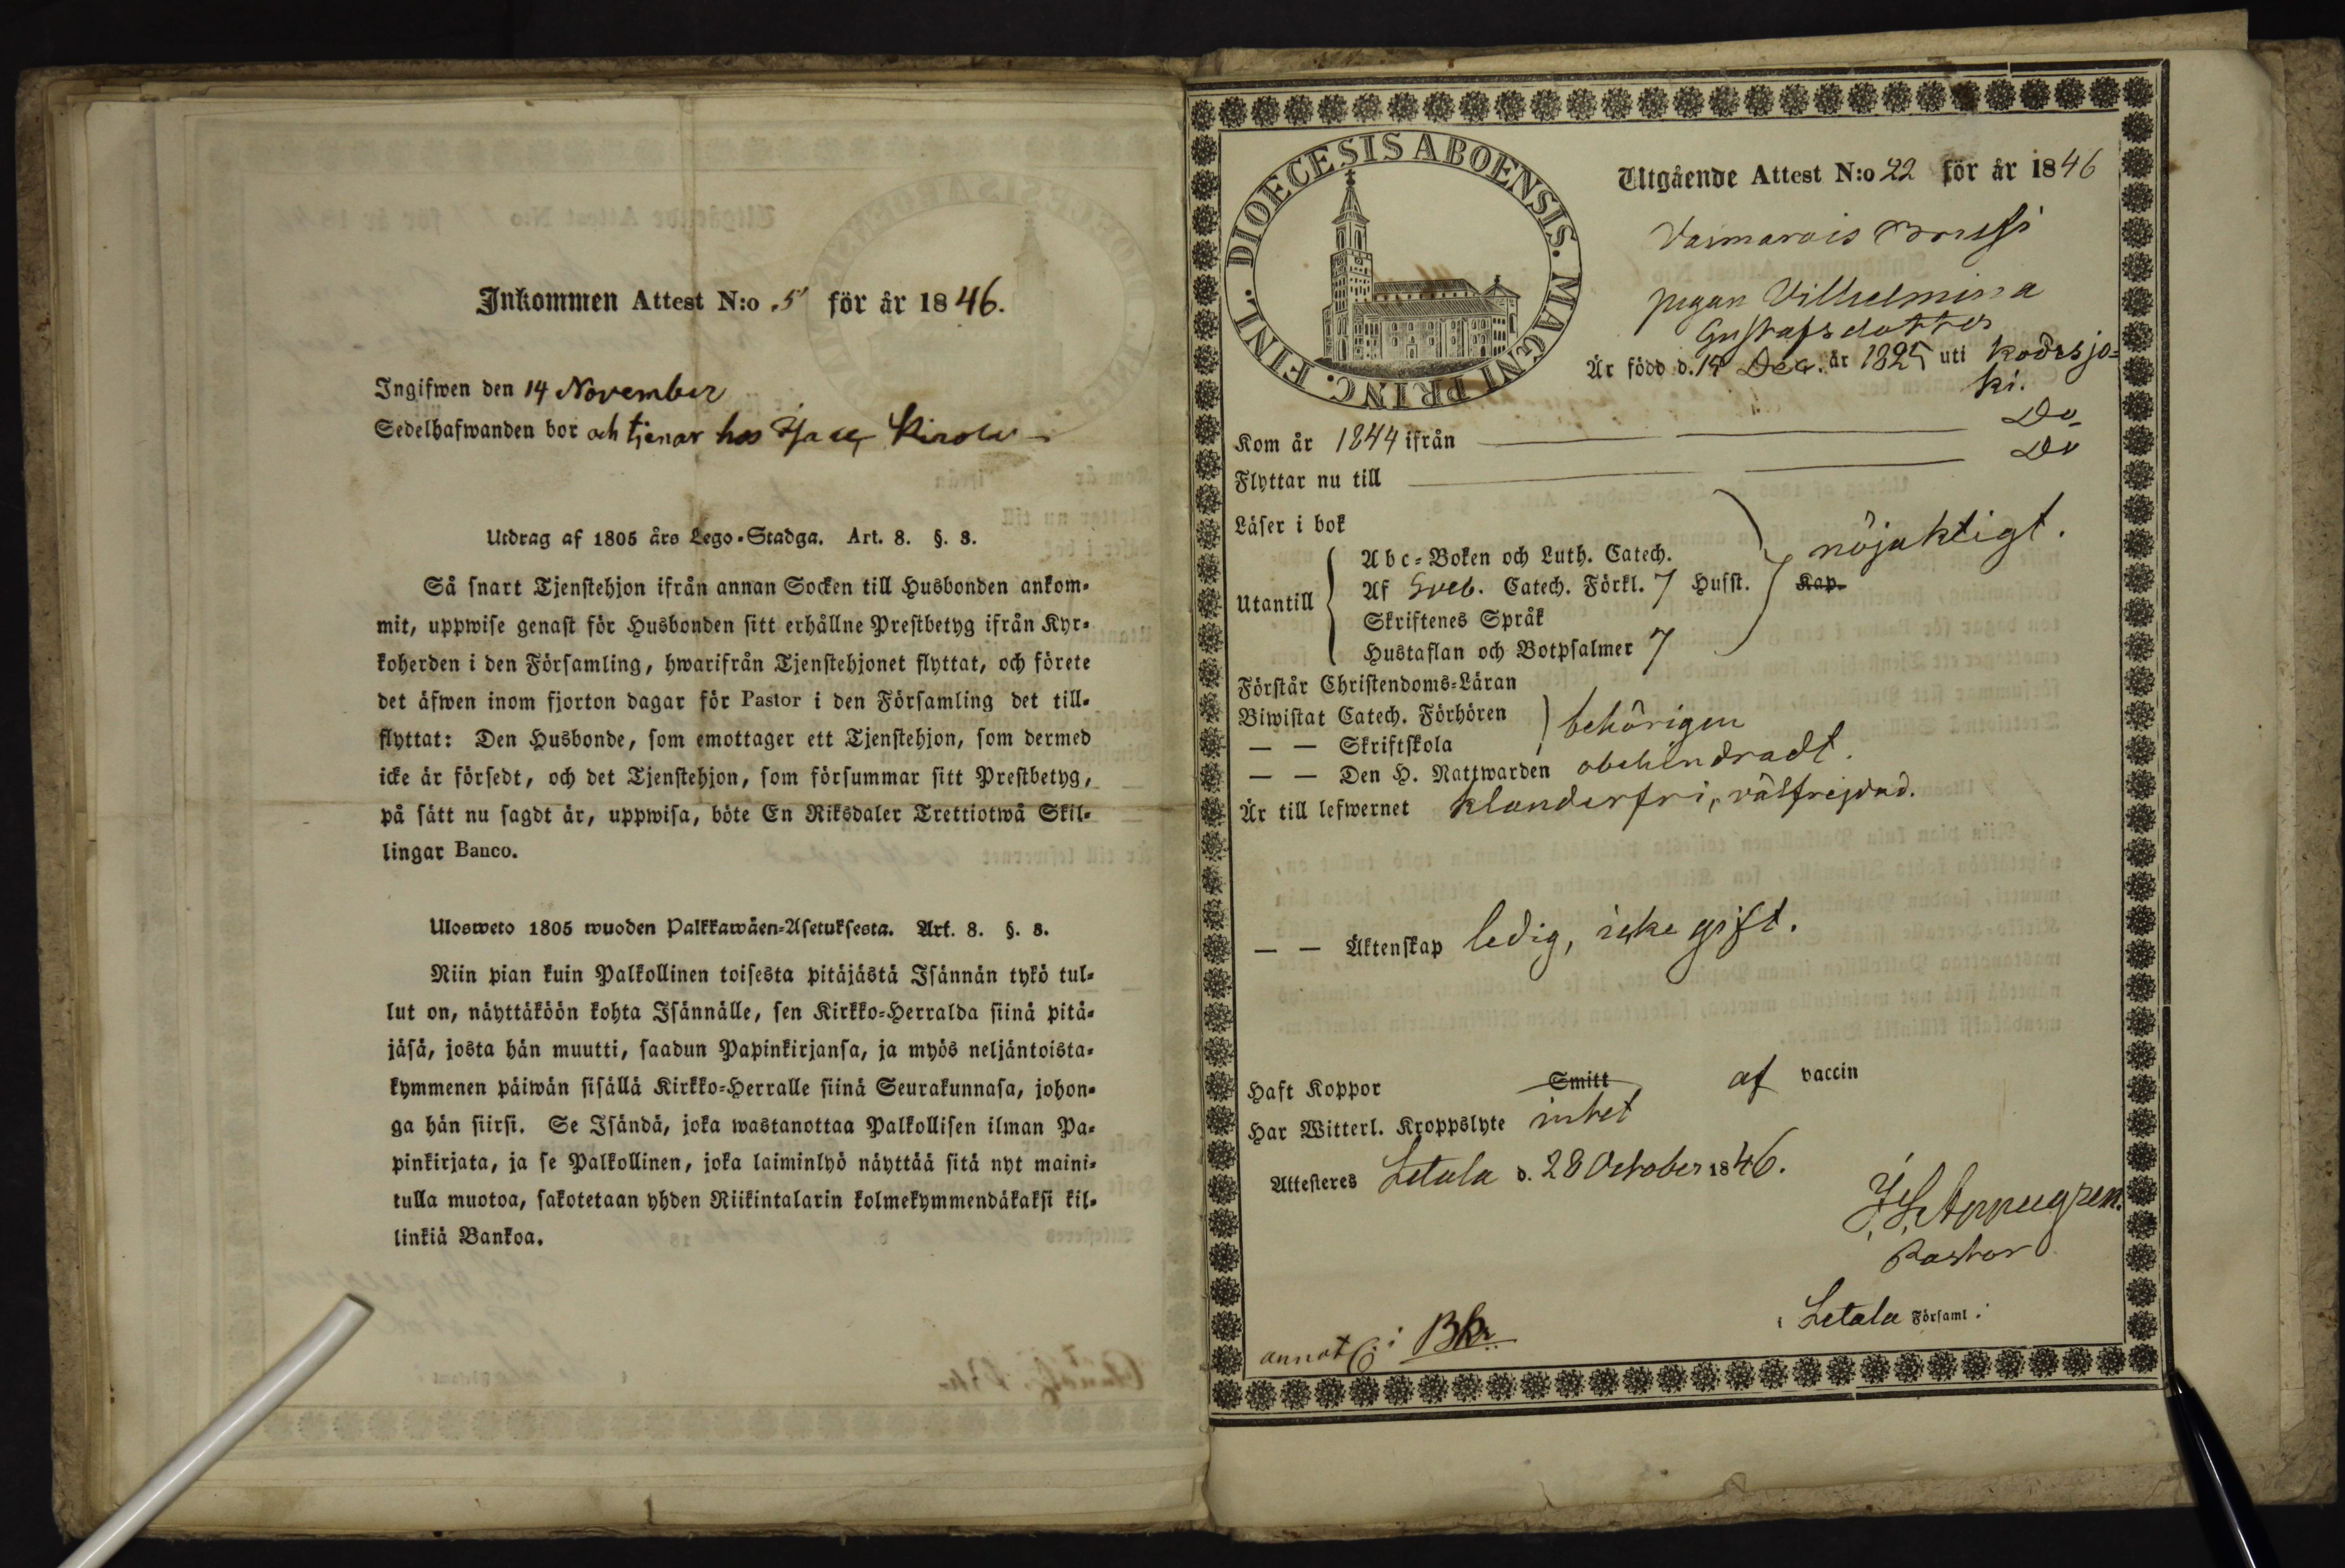 Inkommen Attest N:o 5 för år 1846.
Ingifwen den 14 November
Sedelhafwanden bor och tjenar hos
Utdrag af 1805 års Lego-Stadga. Art. 8. §. 8.
Så snart Tjenstehjon ifrån annan Socken till Husbonden ankom-
mit, uppwise genast för Husbonden sitt erhållne Prestbetyg ifrån Kyr-
koherden i den Församling, hwarifrån Tjenstehjonet flyttat, och förete
det äfwen inom fjorton dagar för Pastor i den Församling det till-
flyttat: Den Husbonde, som emottager ett Tjenstehjon, som dermed
icke är försedt, och det Tjenstehjon, som försummar sitt Prestbetyg,
på sätt nu sagdt är, uppwisa, böte En Riksdaler Trettiotwå Skil-
lingar Banco.
Ulosweto 1805 wuoden Palkkawäen-Asetuksesta. Art. 8. §. 8.
Niin pian kuin Palkollinen toisesta pitäjästä Isännän tykö tul-
lut on, näyttäköön kohta Isännälle, sen Kirkko-Herralda siinä pitä-
jäsä, josta hän muutti, saadun Papinkirjansa, ja myös neljäntoista-
kymmenen päiwän sisällä Kirkko-Herralle siinä Seurakunnasa, johon-
ga hän siirsi. Se Isändä, joka wastanottaa Palkollisen ilman Pa-
pinkirjata, ja se Palkollinen, joka laiminlyö näyttää sitä nyt maini-
tulla muotoa, sakotetaan yhden Riikintalarin kolmekymmendäkaksi kil-
linkiä Bankoa.
DIOECESIS ABOENSIS. MAGNI PRINC. FINL.
Utgående Attest N:o 22 för år 1846
pigan Vilhelmina
Gustafsdotter
Är född d. 15 Dec. år 1825 uti Kodisjo=
ki.
Kom år 1844 ifrån Do
Flyttar nu till Do
Läser i bok
Utantill
Abc-Boken och Luth. Catech.
Af Sveb. Catech. Förkl. 7 Husst. Kap.
Skriftenes Språk
Hustaflan och Botpsalmer 7
nöjaktigt.
Förstår Christendoms-Läran
Biwistat Catech. Förhören
— — Skriftskola
behörigen
— — Den H. Nattwarden obehindradt.
Är till lefwernet klanderfri, välfrejdad.
— — Äktenskap ledig, icke gift.
Haft Koppor Smitt af vaccin
Har Witterl. Kroppslyte intet
Attesteres Letala d. 28 October 1846.
Pastor
i Letala Församl.
annot. i Bkn